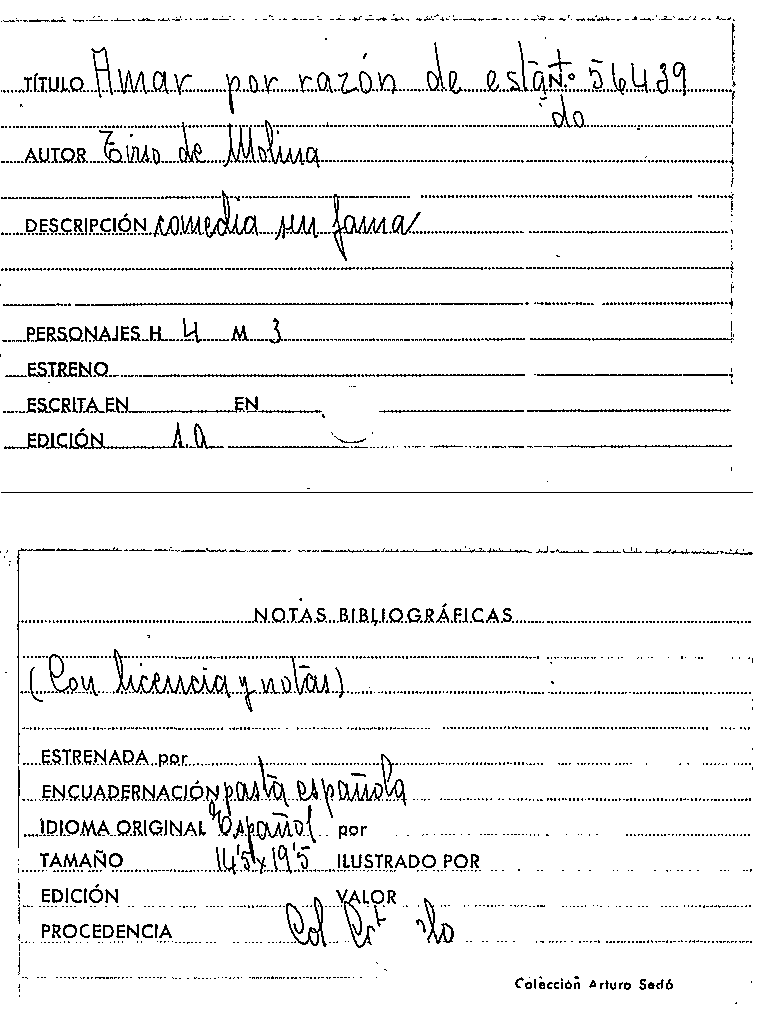 TÍTULO Amar por razón de esta N.º 56439
do
AUTOR Tirso de Molina
DESCRIPCIÓN comedia sin fama
PERSONAJES H 4 M 3
ESTRENO
ESCRITA EN EN
EDICIÓN 1.a
NOTAS BIBLIOGRÁFICAS
(Con licencia y notas)
ESTRENADA por
ENCUADERNACIÓN pasta española
IDIOMA ORIGINAL Español por
TAMAÑO 14'5x19'5 ILUSTRADO POR
EDICIÓN VALOR
PROCEDENCIA Col
Colección Arturo Sedó